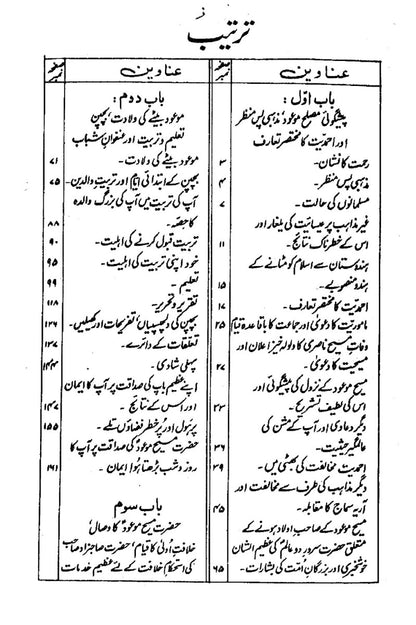 ترتیب
عناوین صفحہ نمبر
باب اوّل:
پیشگوئی مصلح موعود، مذہبی پس منظر
اور احمدیت کا مختصر تعارف
رحمت کا نشان۔ ۳
مذہبی پس منظر۔ ۴
مسلمانوں کی حالت۔ ۷
غیر مذاہب پر عیسائیت کی یلغار اور
اس کے خطرناک نتائج۔ ۱۱
ہندوستان سے اسلام کو مٹانے کے
ہندو منصوبے۔ ۱۵
احمدیت کا مختصر تعارف۔ ۱۷
ماموریت کا دعویٰ اور جماعت کا باقاعدہ قیام ۲۵
وفاتِ مسیح ناصری کا ولولہ خیز اعلان اور
مسیحیت کا دعویٰ۔ ۲۷
مسیح موعود کے نزول کی پیشگوئی اور
اس کی لطیف تشریح۔ ۳۳
دیگر دعاوی اور آپ کے مشن کی
عالمگیر حیثیت۔ ۳۶
احمدیت مخالفت کی بھٹی میں۔ ۳۹
دیگر مذاہب کی طرف سے مخالفت اور
آریہ سماج کا مقابلہ۔ ۴۵
مسیح موعود کے صاحبِ اولاد ہونے کے
متعلق حضرت سرورِ دو عالمؐ کی عظیم الشان
خوشخبری اور بزرگانِ اُمت کی بشارات۔ ۶۵
عناوین صفحہ نمبر
باب دوم:
موعود بیٹے کی ولادت، بچپن
تعلیم و تربیت اور عنفوانِ شباب
موعود بیٹے کی ولادت۔ ۷۱
بچپن کے ابتدائی ایام اور تربیتِ والدین۔ ۷۵
آپ کی تربیت میں آپ کی بزرگ والدہ
کا حصہ۔ ۸۸
تربیت قبول کرنے کی اہلیت۔ ۹۰
خود اپنی تربیت کی اہلیت۔ ۹۵
تعلیم۔ ۹۹
تقریر و تحریر۔ ۱۱۸
بچپن کی دلچسپیاں، تفریحات اور کھیلیں۔ ۱۲۶
تعلقات کے دائرے۔ ۱۳۷
پہلی شادی۔ ۱۴۴
اپنے عظیم باپ کی صداقت پر آپ کا ایمان
اور اس کے نتائج۔ ۱۴۷
پرہول اور پُرخطر فضاؤں تلے۔ ۱۵۵
حضرت مسیح موعودؑ کی صداقت پر آپ کا
روز و شب بڑھتا ہوا ایمان۔ ۱۶۱
باب سوم
حضرت مسیح موعودؑ کا وصال،
خلافتِ اُولیٰ کا قیام، حضرت صاحبزادہ صاحب
کی استحکامِ خلافت کے لئے عظیم خدمات